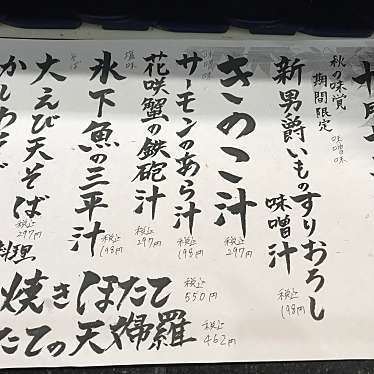 秋の味覚
期間限定
味噌味
新男爵いものすりおろし
味噌汁
税込
198円
きのこ汁
税込
297円
味噌味
サーモンのあら汁
税込
198円
花咲蟹の鉄砲汁
税込
297円
塩味
氷下魚の三平汁
税込
198円
そば
大えび天そば
税込
297円
かしわそば
料理
焼きほたて
税込
550円
たての天婦羅
税込
462円